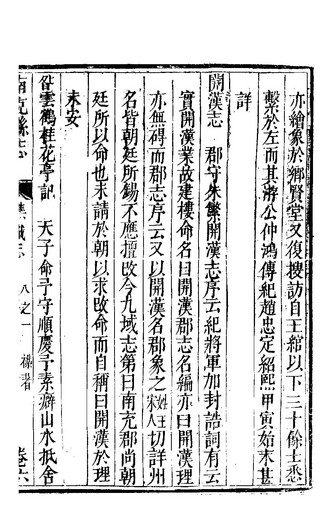 亦繪象於鄉賢堂又復搜訪自王綰以下三十餘士悉
繫於左而其游公仲鴻傳紀趙忠定紹熙甲寅始末甚
詳
開漢志　郡守朱繁開漢志序云紀將軍加封誥詞有云
實開漢業故建樓命名曰開漢郡志名編亦曰開漢理
亦無碍而郡志序云又以開漢名郡象之姓王宋人切詳州
名皆朝廷所錫不應擅改今九域志第曰南充郡尚朝
廷所以命也未請於朝以求改命而自稱曰開漢於理
未安
昝雲鶴桂花亭記　天子命予守順慶予素癖山水抵舍
南充縣志
集誠志
八之一
襍著
卷六